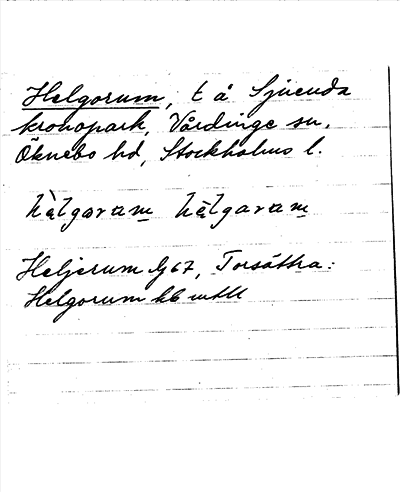 Helgorum, t å Sjuenda
kronopark, Vårdinge sn,
Öknebo hd, Stockholms l.
hàlgaram hàlgaram
Heljerum lj 67, Torsåttra:
Helgorum hb